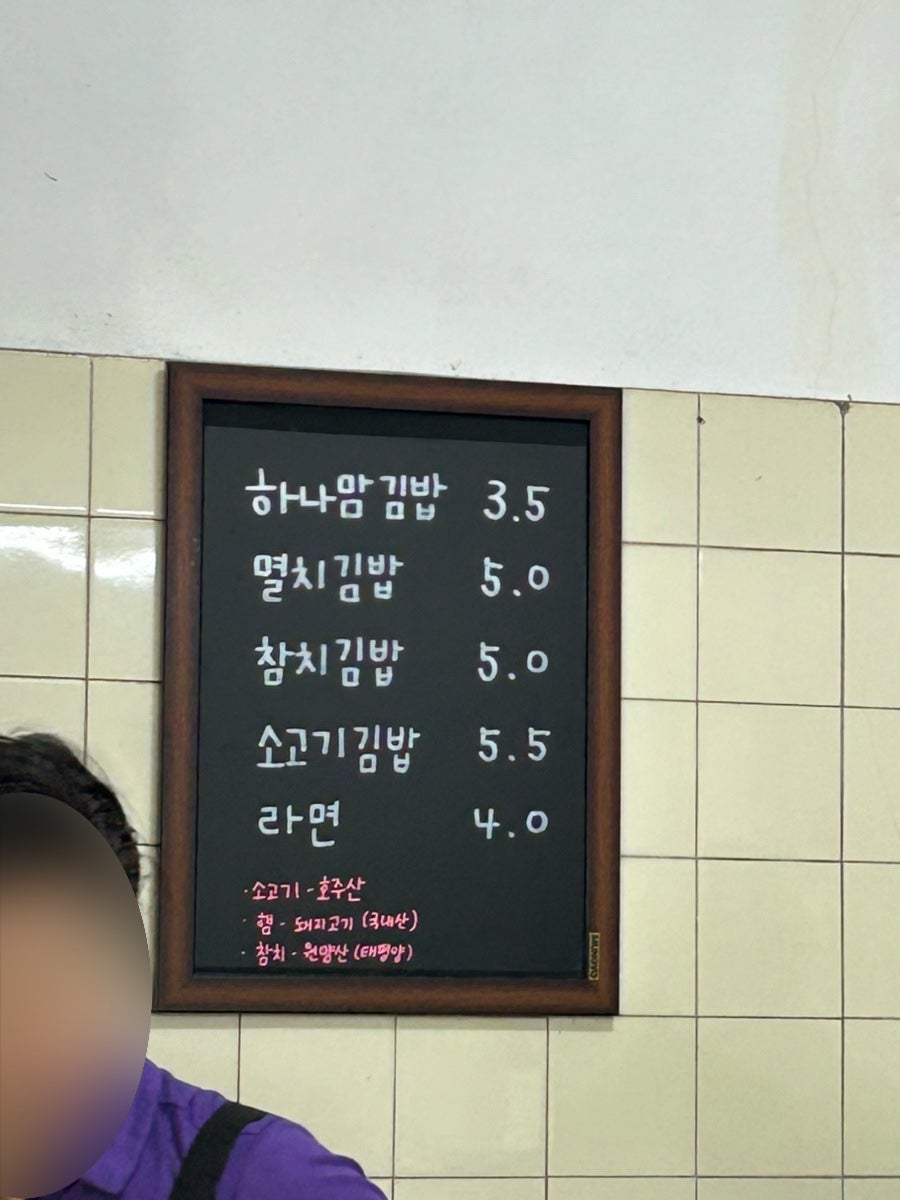 하나맘김밥 3.5
멸치김밥 5.0
참치김밥 5.0
소고기김밥 5.5
라면 4.0
·소고기 - 호주산
· 햄 - 돼지고기 (국내산)
· 참치 - 원양산 (태평양)